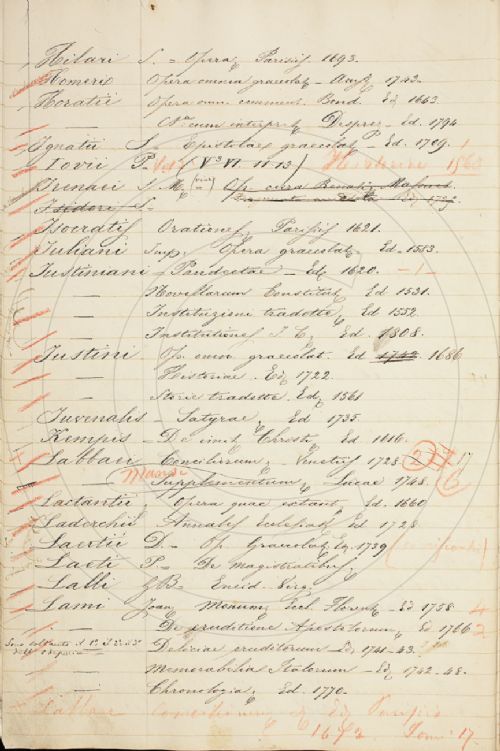 Hilari S. = Opera, Parisis 1693.
Homerio Opera omnia graecolat. Aug. 1742.
Horatii Opera omn. comment. Bond. Ed. 1663.
— cum interpret. Despres — Ed. 1794
Ignatii S. Epistolae graecolat — Ed. 1709. 1
Iovii P. Vol. (V° VI. 11. 13) Historiae
Irenaei S. M.
Isidori S.
Isocratis Orationes, Parisis 1621.
Iuliani Imp. Opera graecolat, Ed. 1583.
Iustiniani Pandectae — Ed. 1620. — 1 —
— Novellarum Constitut. Ed. 1531.
— Instituzioni tradotte, Ed. 1552.
— Institutiones I. C. Ed. 1808.
Iustini Op. omn. graecolat. Ed. 1742 1686
— Historiae. Ed. 1722.
— Storie tradotte. Ed. 1561
Iuvenalis — Satyrae, Ed. 1735.
Kempis — De imit. Christi, Ed. 1616.
Labbaei Conciliorum, — Venetiis 1728
Mansi Supplementum, Lucae 1748.
Lactantii Opera quae extant, Ed. 1660
Laderchii Annales Ecclesiast. Ed. 1728
Laertii D. — Op. Graecolat. Ed. 1739
Laeti P. — De magistratibus
Lalli G B Eneid. Virg.
Lami Joan. Monum. Eccl. Florent. — Ed. 1758. 4
— De eruditione Apostolorum, Ed. 1766 2
— Deliciae eruditorum Ed. 1741-43.
— Memorabilia Italorum — Ed. 1742-48.
— Chronologia, Ed. 1770.
Labbae Ed. Parisis
1672. Tom. 17.